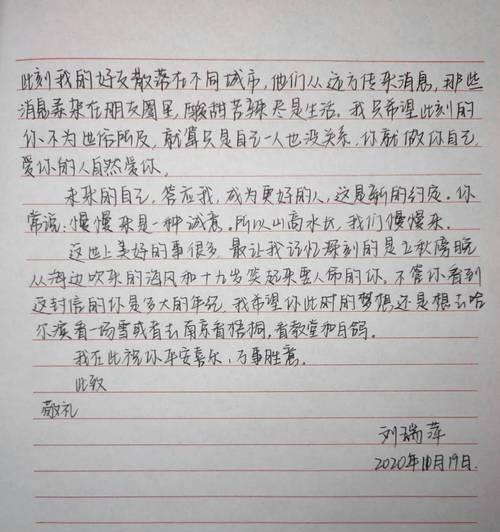 此刻我的好友散落在不同城市,他们从远方传来消息,那些
消息柔杂在朋友圈里,酸甜苦辣尽是生活。我只希望此刻的
你不为世俗所及,就算只是自己一人也没关系,你就做你自己,
爱你的人自然爱你。
未来的自己,答应我,成为更好的人,这是新的约定。你
常说:慢慢来是一种诚意。所以山高水长,我们慢慢来。
这世上美好的事很多,最让我记忆琛刻的是立秋傍晚
从海边吹来的海风和十九岁笑起来要人命的你。不管你看到
这封信的你是多大的年纪,我希望你此时的梦想还是想去哈
尔滨看一场雪或者去南京看梧桐,看教堂和白鸽。
我在此祝你平安喜乐,万事胜意。
此致
敬礼
刘瑞萍
2020年10月19日.